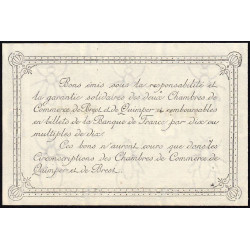 Bons émis sous la responsabilité et
la garantie solidaires des deux Chambres de
Commerce de Brest et de Quimper et remboursables
en billets de la Banque de France par dix ou
multiples de dix.
Ces bons n'auront cours que dans les
Circonscriptions des Chambres de Commerce de
Quimper et de Brest.